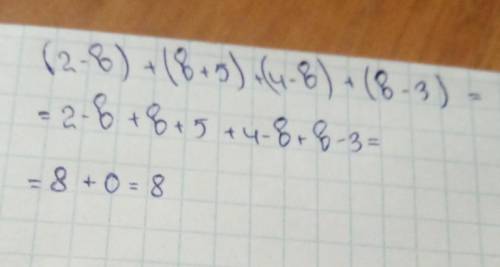 (2-8) + (8+5) + (4-8) + (8-3) =
= 2-8 + 8 + 5 + 4-8 + 8-3 =
= 8 + 0 = 8